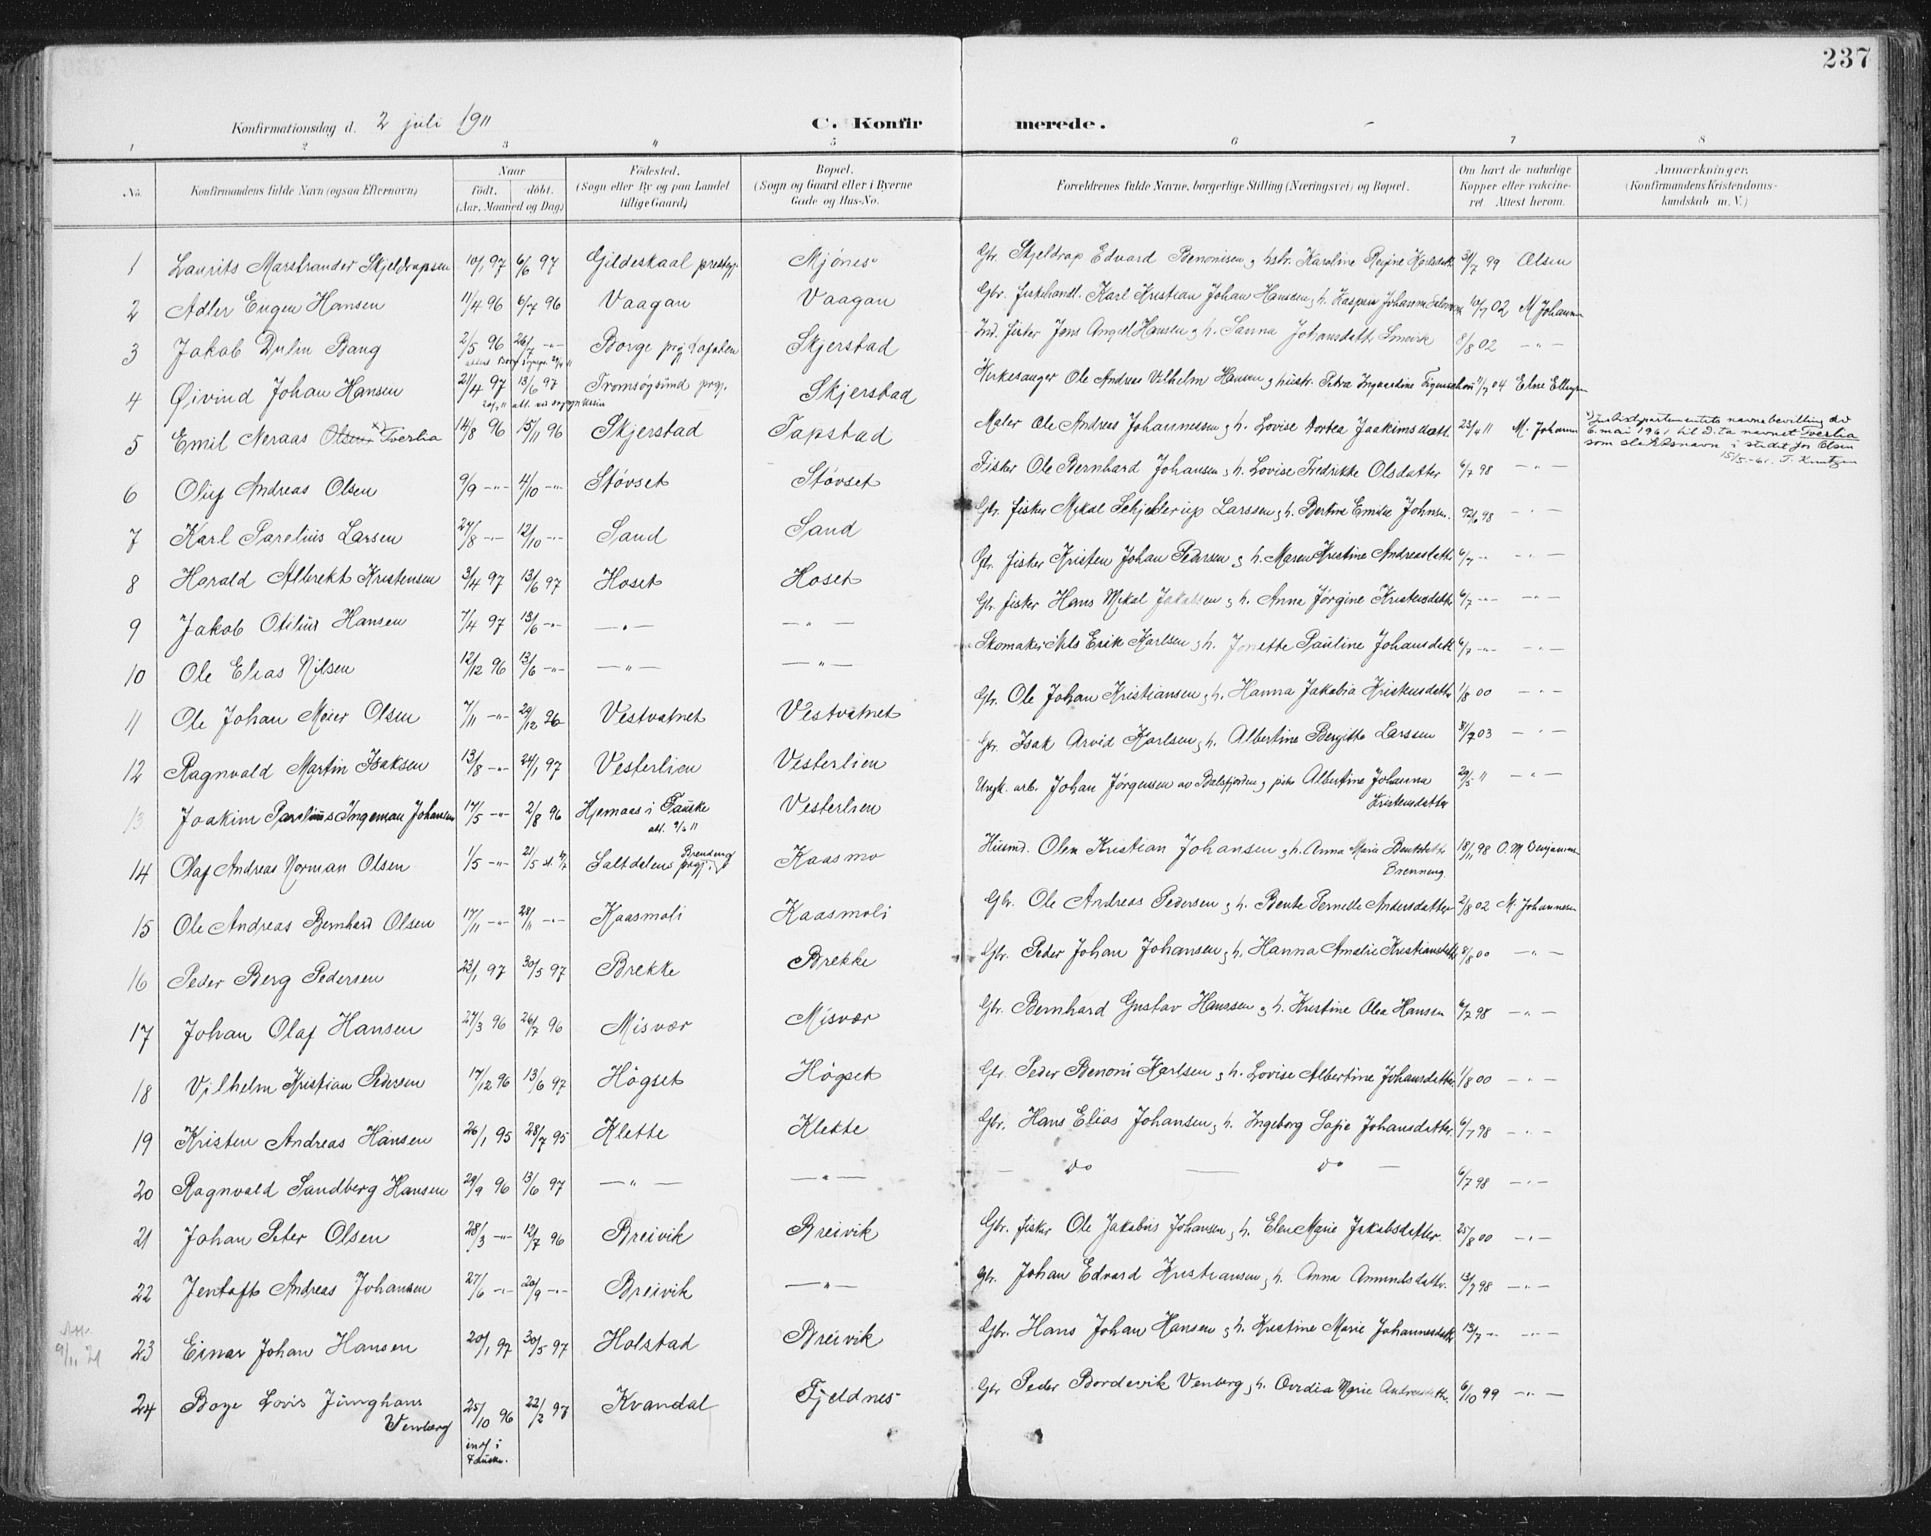 237
Konfirmationsdag d. 2 juli 1911 C. Konfirmerede.
1 2 3 4 5 6 7 8
No. Konfirmandens fulde Navn (ogsaa Efternavn) Naar födt. döbt. (Aar, Maaned og Dag) Födested. (Sogn eller By og paa Landet tillige Gaard) Bopæl. (Sogn og Gaard eller i Byerne Gade og Hus-No. Forældrenes fulde Navne, borgerlige Stilling (Næringsvei) og Bopæl. Om havt de naturlige Kopper eller vakcineret Attest herom. Anmærkninger. (Konfirmandens Kristendomskundskab m. V.)
1 Laurits Marstrander Skjeldrapsen 10/1 97 6/6 97 Gildeskaal prestgj. Mjönes Gbr. Skjeldrap Edvard Benonisen g hstr. Karoline Regine Karlsdt 31/7 99 Olsen
2 Adler Eugen Hansen 11/4 96 6/7 96 Vaagan Vaagan Gbr. fiskehandl. Karl Kristian Johan Hansen g h. Kaspara Johanna 10/7 02 M Johannsen
3 Jakob Dulin Bang 2/5 96 26/7 -"- Borge prgj Lofoten Skjerstad Ind. fisker Jens Angell Hansen g h. Sanna Johansdatter 8/8 02 -"-
4 Øivind Johan Hansen 21/4 97 13/6 97 Tromsøysund prgj. Skjerstad Kirkesanger Ole Andreas Vilhelm Hansen g hustr. Petra Ingvardine Figenschou 11/7 04 Elne Ellingsen
5 Emil Neraas Olsen x) Tverlia 14/8 96 15/11 96 Skjerstad Tapstad Maler Ole Andreas Johannessen g h. Lovise Dortea Joakimsdatt. 23/4 11 M. Johann
x) Justisdepartementets navnebevilling av
6. mai 1961 til d. ta navnet Tverlia
som slektsnavn i stedet for Olsen
15/5-61. T. Knutzen
6 Oluf Andreas Olsen 9/9 -"- 4/10 -"- Støvset Støvset Fisker Ole Bernhard Johansen g h. Lovise Fredrikke Olsdatter 6/7 98 -"-
7 Karl Parelius Larsen 24/8 -"- 12/10 -"- Sand Sand Gbr. fisker Mikal Schjelderup Larssen g h. Bertine Emilie Johnsen. 98 -"-
8 Harald Albrekt Kristensen 3/4 97 13/6 97 Hoset Hoset Gbr. fisker Kristen Johan Pedersen g h. Maren Kristine Andreasdatt 6/7 -"- -"-
9 Jakob Otilius Hansen 7/4 97 13/6 -"- -"- -"- Gbr. fisker Hans Mikal Jakobsen g h. Anna Jörgine Kristensdatter 6/7 -"- -"-
10 Ole Elias Nilsen 12/12 96 13/6 -"- -"- -"- Skomaker Nils Erik Karlsen g h. Jonette Pauline Johansdtt 6/7 -"- -"-
11 Ole Johan Meier Olsen 7/11 -"- 29/12 96 Vestvatnet Vestvatnet Gbr. Ole Johan Kristiansen g h. Hanna Jakobia Kristensdatter 1/8 00 -"-
12 Ragnvald Martin Isaksen 13/8 -"- 24/1 97 Vesterlien Vesterlien Gbr. Isak Arvid Karlsen g h. Albertine Bergitte Larssen 31/7 03 -"-
13 Joakim Parelius Ingeman Johansen 17/5 -"- 2/8 96 Hjemaas i Fauske Vesterlien Ungk. arb. Johan Jørgensen av Balsfjorden g pike Albertine Johanna Kristensdatter 29/5 11 -"-
14 Olaf Andreas Norman Olsen 1/5 -"- 21/5 Saltdalens prgj. Kaasmo Husmd. Olea Kristian Johansen g h. Anna Marie Brenneng 18/11 98 O. M Benjaminsen
15 Ole Andreas Bernhard Olsen 17/11 -"- 28/11 -"- Kaasmoli Kaasmoli Gbr. Ole Andreas Pedersen g h. Bente Pernelle Andersdatter 2/8 02 M. Johannesen
16 Peder Berg Pedersen 23/1 97 30/5 97 Brekke Brekke Gbr. Peder Johan Johansen g h. Hanna Amalie Kristiansdtt 8/8 00 -"-
17 Johan Olaf Hansen 27/3 96 26/7 96 Misvær Misvær Gbr. Bernhard Gustav Hanssen g h. Kristine Olea Hansen 6/7 98 -"-
18 Vilhelm Kristian Pedersen 17/12 96 13/6 97 Högset Högset Gbr. Peder Benoni Karlsen g h. Lovise Albertine Johansdatter 1/8 00 -"-
19 Kristen Andreas Hansen 26/1 95 28/7 95 Klette Klette Gbr. Hans Elias Johansen g h. Ingeborg Sofie Johansdatter. 6/7 98 -"-
20 Ragnvald Sandberg Hansen 29/9 96 13/6 97 -"- -"- — do — do — 6/7 98 -"-
21 Johan Peter Olsen 28/3 -"- 12/7 96 Breivik Breivik Gbr. fisker Ole Jakobus Johansen g h. Elen Marie Jakobsdatter. 25/8 00 -"-
22 Jentoft Andreas Johansen 27/6 -"- 20/9 -"- Breivik -"- Gbr. Johan Edvard Kristiansen g h. Anna Amundsdattr. 13/7 98 -"-
9/11 21
23 Einar Johan Hansen 20/1 97 30/5 97 Holstad Breivik Gbr. Hans Johan Hansen g h. Kristine Marie Johannesdtt 13/7 -"- -"-
24 Boye Lovis Junghans Venberg 25/10 96 22/2 97 Kvandal Fjeldnes Gbr Peder Bordevik Venberg g h. Ovidia Marie Andreasdtt. 6/10 99 -"-
indf i
Fauske.